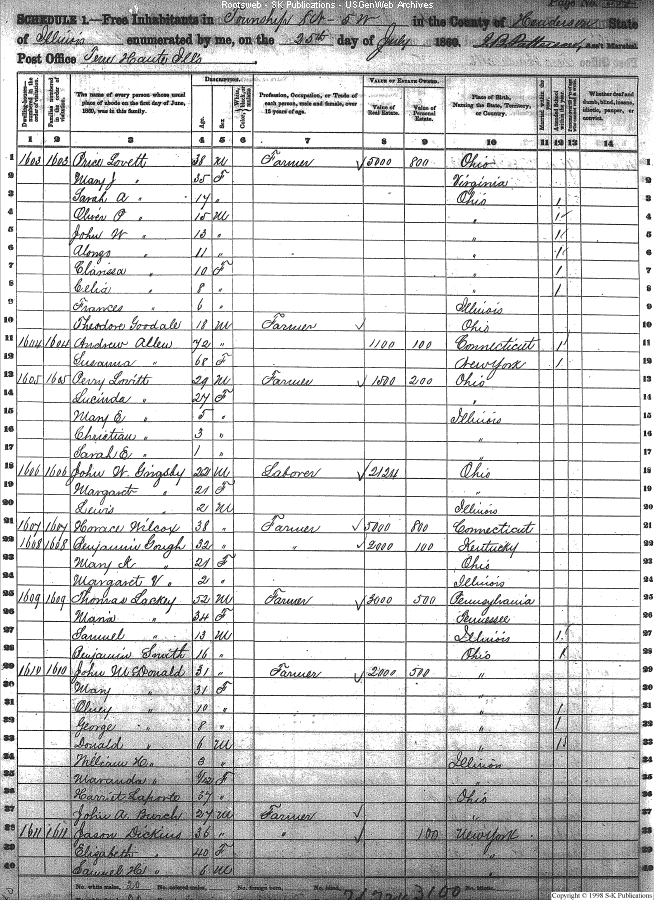 Rootsweb - SK Publications - USGenWeb Archives
Page No.
SCHEDULE 1.—Free Inhabitants in Township 8N - 5W in the County of Henderson State
of Illinois enumerated by me, on the 25th day of July 1860. Ass't Marshal.
Post Office Terre Haute Ills
Dwelling-houses—numbered in the order of visitation. Families numbered in the order of visitation. The name of every person whose usual place of abode on the first day of June, 1860, was in this family. DESCRIPTION. Age. Sex. Color, White, black, or mulatto. Profession, Occupation, or Trade of each person, male and female, over 15 years of age. VALUE OF ESTATE OWNED. Value of Real Estate. Value of Personal Estate. Place of Birth, Naming the State, Territory, or Country. Married within the year. Attended School within the year. Whether deaf and dumb, blind, insane, idiotic, pauper, or convict.
1 2 3 4 5 6 7 8 9 10 11 12 13 14
1 1603 1603 Price Lovett 38 M Farmer 5000 800 Ohio 1
2 Mary J " 35 F Virginia 2
3 Sarah A " 17 " Ohio 1 3
4 Oliver P " 15 M " 1 4
5 John W " 13 " " 1 5
6 Alonzo " 11 " " 1 6
7 Clarissa " 10 F " 1 7
8 Celia " 8 " " 1 8
9 Frances " 6 " Illinois 9
10 Theodore Goodale 18 M Farmer Ohio 10
11 1604 1604 Andrew Allen 72 " 1100 100 Connecticut 1 11
12 Susanna " 68 F New York 1 12
13 1605 1605 Perry Lovitt 29 M Farmer 1500 200 Ohio 13
14 Lucinda " 27 F " 14
15 Mary E " 5 " Illinois 15
16 Christian " 3 " " 16
17 Sarah E " 1 " " 17
18 1606 1606 John W. Gingsby 22 M Laborer Ohio 18
19 Margaret " 21 F " 19
20 Lewis " 2 M Illinois 20
21 1607 1607 Horace Wilcox 38 " Farmer 5000 800 Connecticut 21
22 1608 1608 Benjamin Gough 32 " " 2000 100 Kentucky 22
23 Mary K " 21 F Ohio 23
24 Margaret V " 2 " Illinois 24
25 1609 1609 Thomas Lackey 52 M Farmer 3000 500 Pennsylvania 25
26 Maria " 34 F Tennessee 26
27 Samuel " 13 M Illinois 1 27
28 Benjamin Smith 16 " Ohio 1 28
29 1610 1610 John McDonald 31 " Farmer 2000 500 " 29
30 Mary " 31 F " 30
31 " 10 " " 1 31
32 George " 8 " " 1 32
33 Donald " 6 M " 1 33
34 William H. " 3 " Illinois 34
35 Maranda " F " 35
36 Harriet Laporte 37 " Ohio 36
37 John A. Burch 27 M Farmer " 37
38 1611 1611 Jason Dickins 36 " " 100 New York 38
39 Elizabeth " 40 F " 39
40 Samuel H " 6 M " 40
No. white males, 20 No. colored males, No. foreign born, No. blind,
3100
Copyright © 1998 S-K Publications